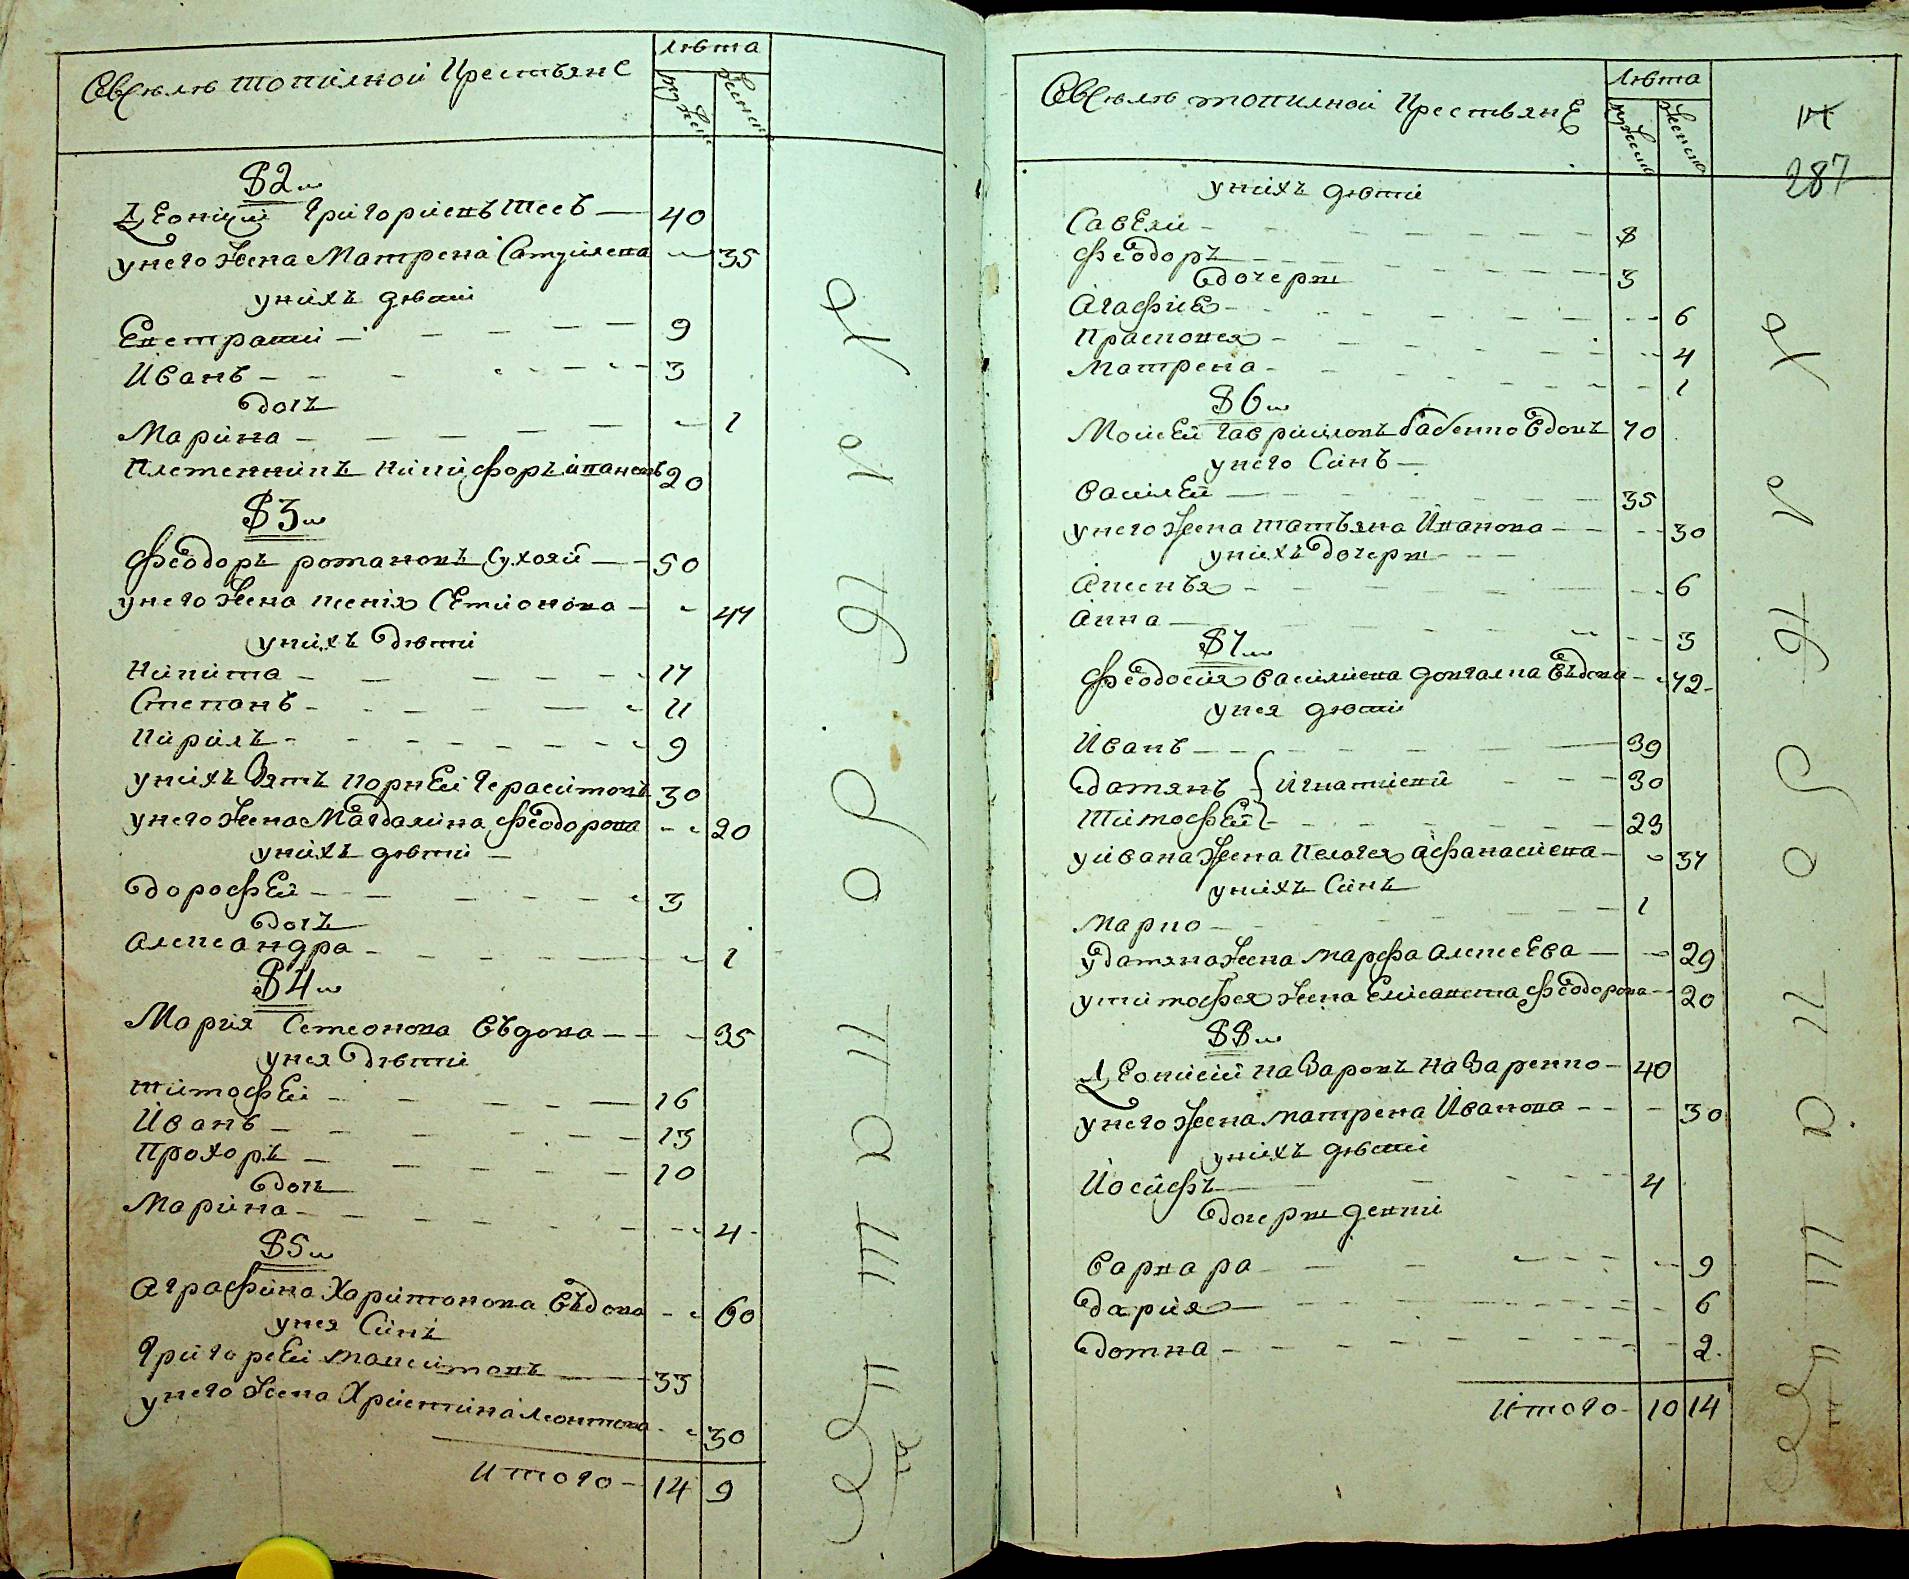 Лѣта
Мужес
Женск
82
Григориевъ 40
у него жена Матрена 35
у нихъ дѣти
Евстратий 9
Иванъ 3
дочь
Марина 1
Никифоръ 20
83
Феодоръ Романовъ Сухой 50
у него жена Ксения Семионова 47
у нихъ дѣти
Никита 17
Степанъ 11
Кирилъ 9
у нихъ зять Корней Герасимовъ 30
у него жена Магдалина Феодорова 20
у нихъ дѣти
Дорофей 3
дочь
Александра 1
84
Мария Семеонова въдова 35
у нея дѣти
Тимофей 16
Иванъ 13
Прохоръ 10
дочь
Марина 4
85
Аграфина Харитонова въдова 60
у нея синъ
Григорей Максимовъ 33
у него жена Христина Леонтова 30
Итого 14 9
Лѣта
Мужеска
Женска
287
у нихъ дѣти
Савели 8
Феодоръ 3
дочери
Агафия 6
Прасковея 4
Матрена 1
86
Моисей Гавриловъ Бабенко вдовъ 70
у него синъ
Василей 35
у него жена Татьяна Иванова 30
у нихъ дочери
Аксенья 6
Анна 3
87
Феодосия Василиева въдова 72
у нея дѣти
Иванъ 39
Дамянъ Игнатиевы 30
Тимофей 23
у Ивана жена Пелагея Афанасиева 37
у нихъ синъ
Марко 1
у Дамяна жена Марфа Алексеева 29
у Тимофея жена Елисавета Феодорова 20
88
Назаровъ Назаренко 40
у него жена Матрена Иванова 30
у нихъ дѣти
Иосифъ 4
дочери
Варвара 9
Дария 6
Домна 2
Итого 10 14